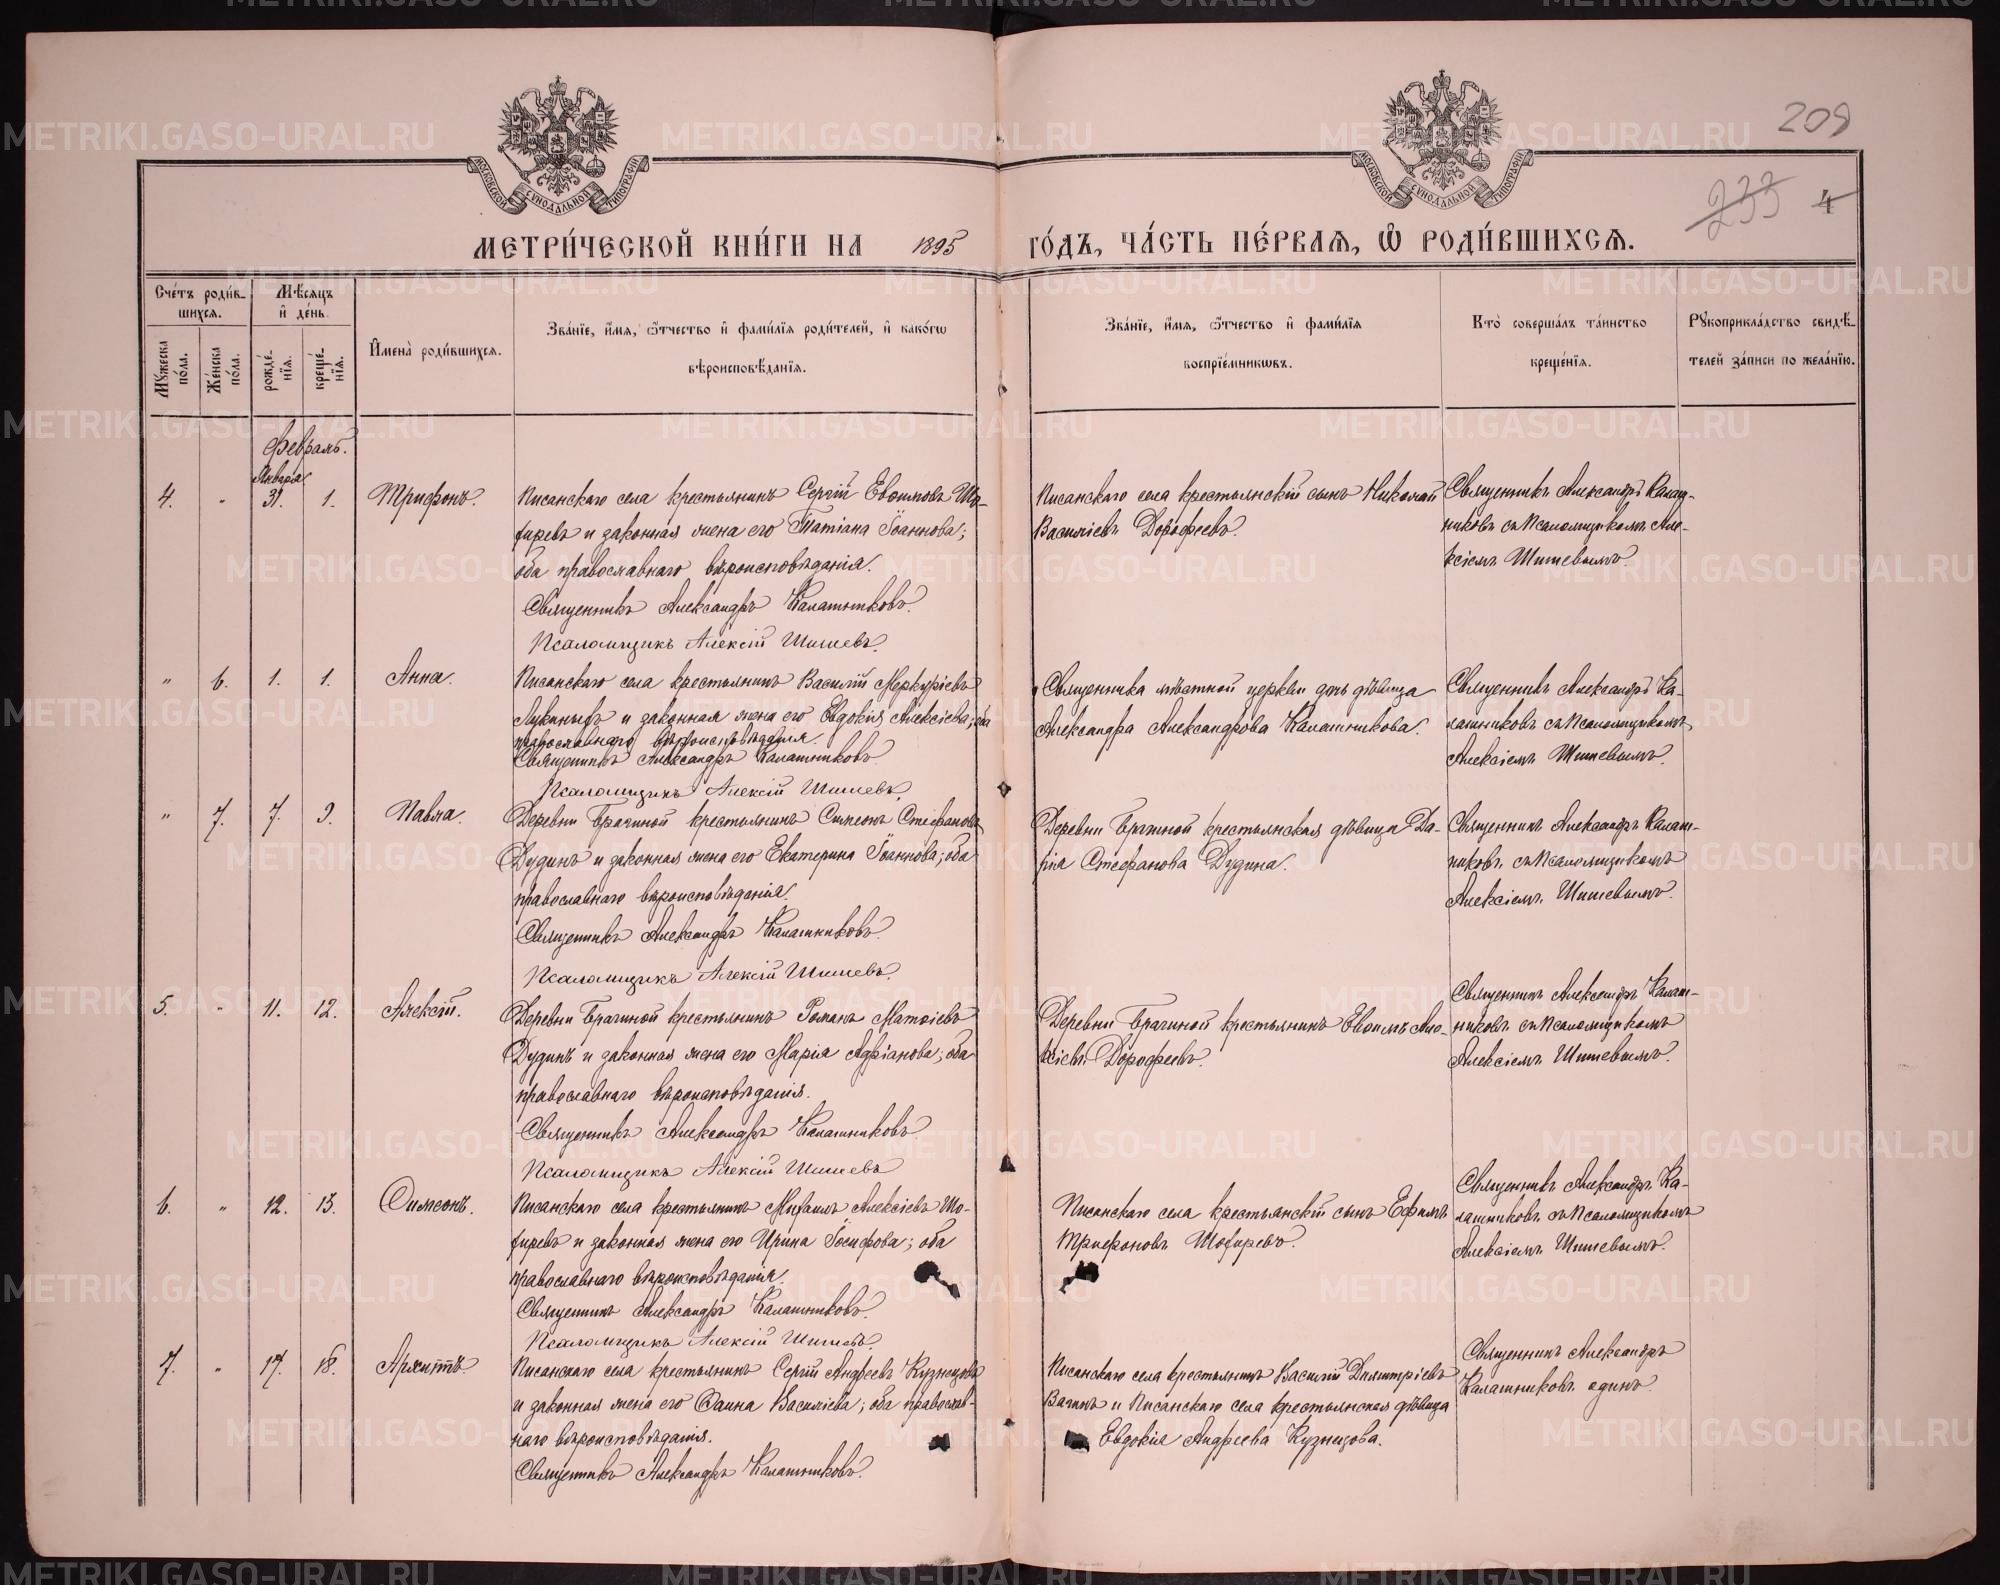 209
233 4
МОСКОВСКОЙ СУНОДАЛЬНОЙ ТИПОГРАФІИ
МОСКОВСКОЙ СУНОДАЛЬНОЙ ТИПОГРАФІИ
МЕТРИ́ЧЕСКОЙ КНИ́ГИ НА 1895 ГО́ДЪ, ЧА́СТЬ ПЕ́РВАЯ, Ѽ РОДИ́ВШИХСЯ.
Сче́тъ роди́в-
шихся.
Мѣ́сяцъ
и де́нь.
Мꙋ́жеска
по́ла.
Же́нска
по́ла.
рожде́-
нїя.
креще́-
нїя.
Имена̀ роди́вшихся.
Зва́нїе, и́мя, ѻ҆́тчество и фами́лїя роди́телей, и како́гѡ
вѣроисповѣ́данїя.
Зва́нїе, и́мя, ѻ҆́тчество и фами́лїя
воспрїе́мникѡвъ.
Кто̀ соверша́лъ та́инство
креще́нїя.
Рꙋкоприкла́дство свидѣ́-
телей за́писи по жела́нїю.
Февраль.
Января
4. " 31. 1. Трифонъ.
Писанскаго села крестьянинъ Сергій Евѳимовъ Шо-
хиревъ и законная жена его Татіана Іоаннова;
оба православнаго вѣроисповѣданія.
Священникъ Александръ Калашниковъ.
Псаломщикъ Алексій Шишевъ.
Писанскаго села крестьянскій сынъ Николай
Василіевъ Дорофеевъ.
Священникъ Александръ Калаш-
никовъ съ Псаломщикомъ Але-
ксіемъ Шишевымъ.
" 6. 1. 1. Анна.
Писанскаго села крестьянинъ Василій Меркуріевъ
Лукиныхъ и законная жена его Евдокія Алексіева; оба
православнаго вѣроисповѣданія.
Священникъ Александръ Калашниковъ.
Псаломщикъ Алексій Шишевъ.
Священника мѣстной церкви дочь дѣвица
Александра Александрова Калашникова.
Священникъ Александръ Ка-
лашниковъ съ Псаломщикомъ
Алексіемъ Шишевымъ.
" 7. 7. 9. Павла.
Деревни Брагиной крестьянинъ Симеонъ Стефановъ
Дудинъ и законная жена его Екатерина Іоаннова; оба
православнаго вѣроисповѣданія.
Священникъ Александръ Калашниковъ.
Псаломщикъ Алексій Шишевъ.
Деревни Брагиной крестьянская дѣвица Да-
рія Стефанова Дудина.
Священникъ Александръ Калаш-
никовъ съ Псаломщикомъ
Алексіемъ Шишевымъ.
5. " 11. 12. Алексій.
Деревни Брагиной крестьянинъ Романъ Матѳіевъ
Дудинъ и законная жена его Марія Адріанова; оба
православнаго вѣроисповѣданія.
Священникъ Александръ Калашниковъ.
Псаломщикъ Алексій Шишевъ
Деревни Брагиной крестьянинъ Евѳимъ Але-
ксіевъ Дорофеевъ.
Священникъ Александръ Калаш-
никовъ съ Псаломщикомъ
Алексіемъ Шишевымъ.
6. " 12. 13. Симеонъ.
Писанскаго села крестьянинъ Михаилъ Алексіевъ Шо-
хиревъ и законная жена его Ирина Іосифова; оба
православнаго вѣроисповѣданія.
Священникъ Александръ Калашниковъ.
Псаломщикъ Алексій Шишевъ.
Писанскаго села крестьянскій сынъ Ефимъ
Трифоновъ Шохиревъ.
Священникъ Александръ Ка-
лашниковъ съ Псаломщикомъ
Алексіемъ Шишевымъ.
7. " 17. 18. Архиппъ.
Писанскаго села крестьянинъ Сергій Андреевъ Кузнецовъ
и законная жена его Фаина Василіева; оба православ-
наго вѣроисповѣданія.
Священникъ Александръ Калашниковъ.
Писанскаго села крестьянинъ Василій Димитріевъ
Вагинъ и Писанскаго села крестьянская дѣвица
Евдокія Андреева Кузнецова.
Священникъ Александръ
Калашниковъ одинъ.
METRIKI.GASO-URAL.RU